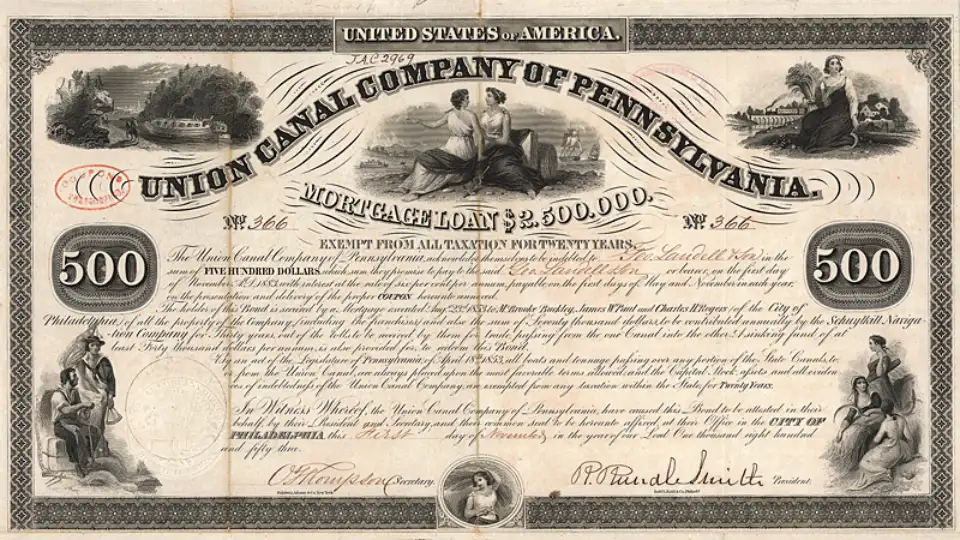 UNITED STATES OF AMERICA.
J.A.C 2969
UNION CANAL COMPANY OF PENNSYLVANIA.
MORTGAGE LOAN $2.500.000.
No. 366
No. 366
EXEMPT FROM ALL TAXATION FOR TWENTY YEARS.
500
500
The Union Canal Company of Pennsylvania, acknowledge themselves to be indebted to Geo. Landell & Son in the
sum of FIVE HUNDRED DOLLARS, which sum they promise to pay to the said Geo. Landell & Son or bearer, on the first day
of November A.D. 1883 with interest at the rate of six per cent per annum, payable on the first days of May and November in each year,
on the presentation and delivery of the proper COUPON hereunto annexed.
The holder of this Bond is secured by a Mortgage executed 1853 to M. Brooke Buckley, James W Paul and Charles H Rogers (of the City of
Philadelphia) of all the property of the Company (including the franchises) and also the sum of Seventy thousand dollars, to be contributed annually by the Schuylkill Naviga-
tion Company for thirty years, out of the tolls to be received by them on tonnage passing from the one Canal into the other. A sinking fund of at
least Forty thousand dollars per annum, is also provided for, to redeem this Bond.
By an act of the Legislature of Pennsylvania, of April 18th 1853, all boats and tonnage passing over any portion of the State Canals, to
or from the Union Canal, are always placed upon the most favorable terms allowed; and the Capital Stock, assets and all eviden
ces of indebtedness of the Union Canal Company, are exempted from any taxation within the State for Twenty Years.
In Witness Whereof, the Union Canal Company of Pennsylvania, have caused this Bond to be attested in their
behalf, by their President and Secretary, and their common seal to be hereunto affixed, at their Office in the CITY OF
PHILADELPHIA this First day of November in the year of our Lord One thousand eight hundred
and fifty three.
O Thompson Secretary.
R. Rundle Smith President.